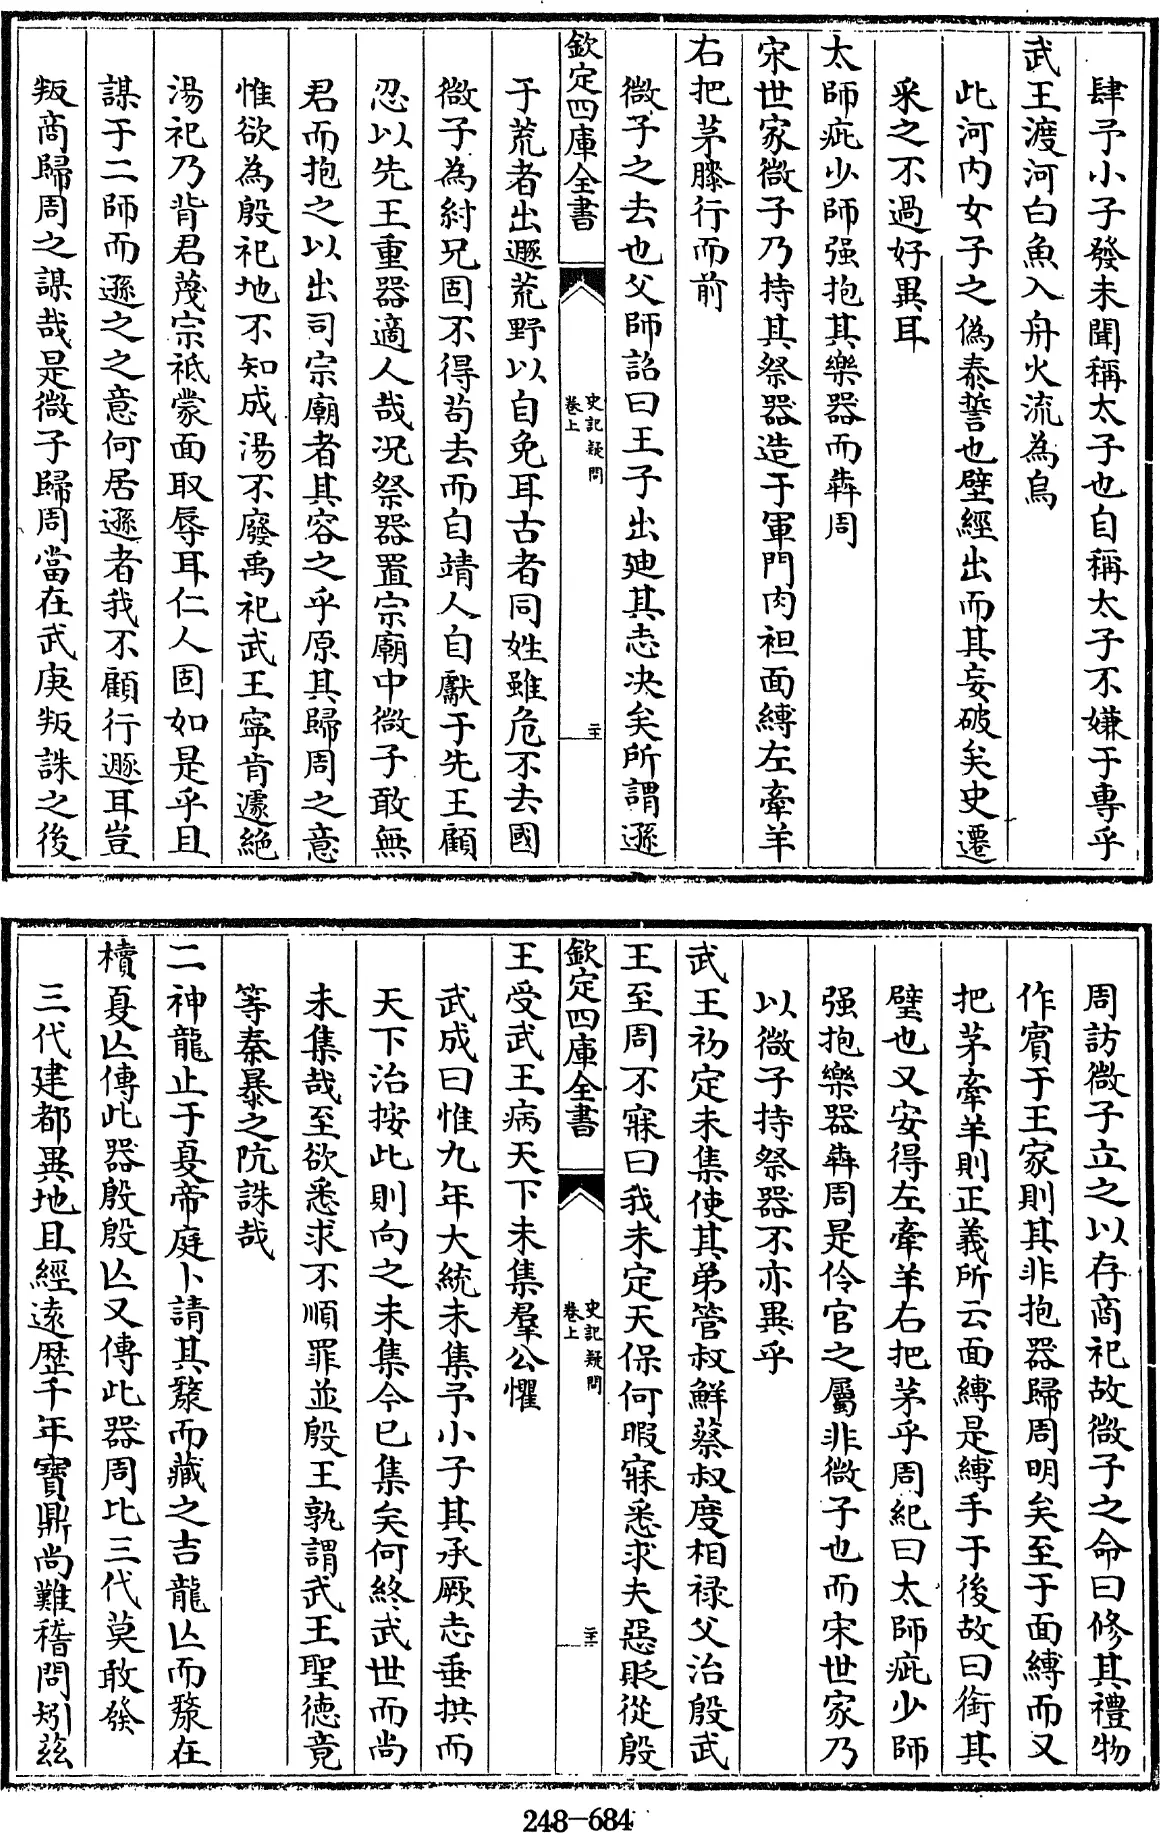 肆予小子發未聞稱太子也自稱太子不嫌于專乎
武王渡河白魚入舟火流為烏
此河内女子之偽泰誓也壁經出而其妄破矣史遷
采之不過好異耳
太師疵少師强抱其樂器而犇周
宋世家微子乃持其祭器造于軍門肉袒面縛左牽羊
右把茅膝行而前
微子之去也父師詔曰王子出廸其志决矣所謂遜
欽定四庫全書
史記疑問
卷上
二十
于荒者出遯荒野以自免耳古者同姓雖危不去國
微子為紂兄固不得苟去而自靖人自獻于先王顧
忍以先王重器適人哉况祭器置宗廟中微子敢無
君而抱之以出司宗廟者其容之乎原其歸周之意
惟欲為殷祀地不知成湯不廢禹祀武王寜肯遽絶
湯祀乃背君蔑宗祗蒙面取辱耳仁人固如是乎且
謀于二師而遜之之意何居遜者我不顧行遯耳豈
叛商歸周之謀哉是微子歸周當在武庚叛誅之後
周訪微子立之以存商祀故微子之命曰修其禮物
作賓于王家則其非抱器歸周明矣至于面縛而又
把茅牽羊則正義所云面縛是縛手于後故曰銜其
璧也又安得左牽羊右把茅乎周紀曰太師疵少師
强抱樂器犇周是伶官之屬非微子也而宋世家乃
以微子持祭器不亦異乎
武王初定未集使其弟管叔鮮蔡叔度相禄父治殷武
王至周不寐曰我未定天保何暇寐悉求夫惡貶從殷
欽定四庫全書
史記疑問
卷上
二十一
王受武王病天下未集羣公懼
武成曰惟九年大統未集予小子其承厥志垂拱而
天下治按此則向之未集今已集矣何終武世而尚
未集哉至欲悉求不順罪並殷王孰謂武王聖德竟
等秦暴之阬誅哉
二神龍止于夏帝庭卜請其漦而藏之吉龍亾而漦在
櫝夏亾傳此器殷殷亾又傳此器周比三代莫敢發
三代建都異地且經遠歷千年寶鼎尚難稽問矧兹
248-684